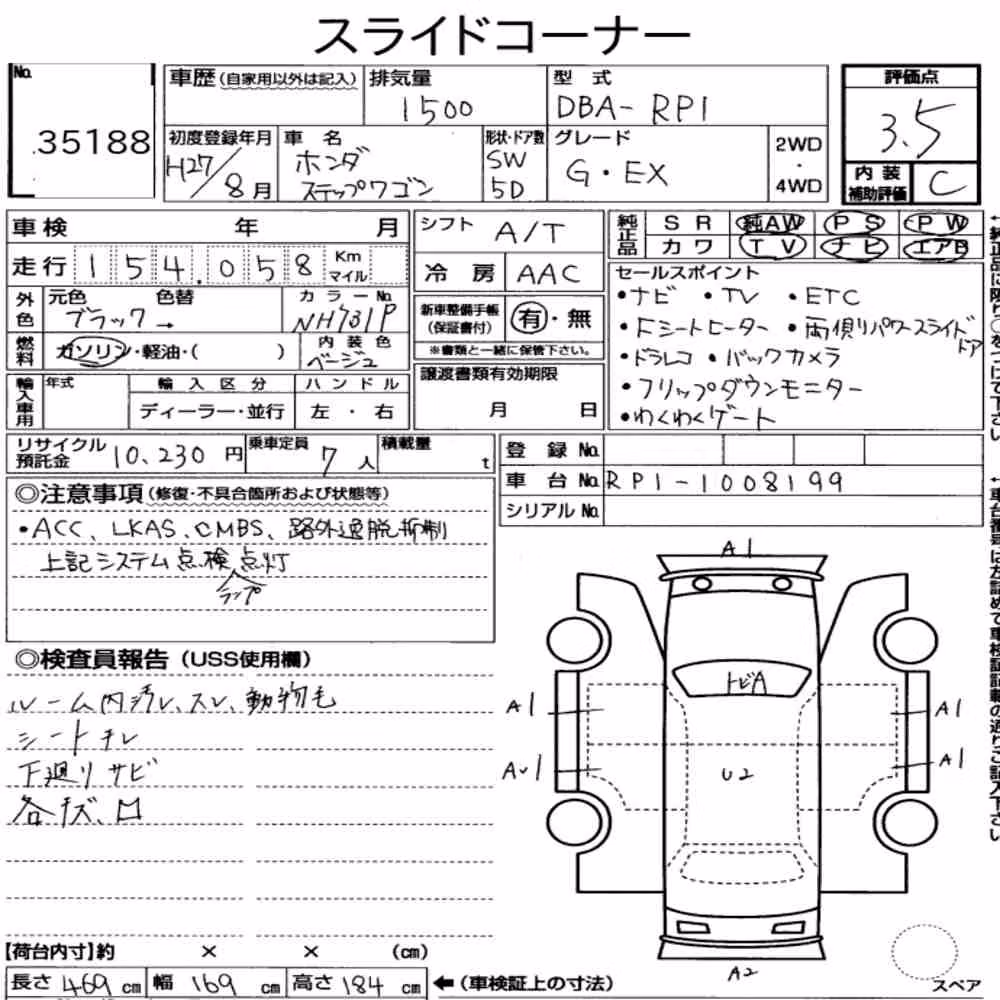 スライドコーナー
No.
35188
車歴(自家用以外は記入)
排気量
1500
型 式
DBA-RP1
評価点
3.5
内 装
補助評価
C
初度登録年月
H27/8月
車 名
ホンダ
ステップワゴン
形状・ドア数
SW
5D
グレード
G・EX
2WD
・
4WD
車検 年 月
走行 154,058 Km
マイル
シフト A/T
冷 房 AAC
純正品
SR 純AW PS PW
カワ TV ナビ エアB
外色
元色 色替
ブラック→
カラーNo.
NH731P
燃料
ガソリン・軽油・( )
内 装 色
ベージュ
新車整備手帳
(保証書付)
有・無
※書類と一緒に保管下さい。
セールスポイント
・ナビ ・TV ・ETC
・Fシートヒーター ・両側リパワースライドドア
・ドラレコ ・バックカメラ
・フリップダウンモニター
・わくわくゲート
輸入車用
年式
輸 入 区 分
ディーラー・並行
ハ ン ド ル
左 ・ 右
譲渡書類有効期限
月 日
リサイクル
預託金
10,230 円
乗車定員
7 人
積載量
t
登 録 No.
車 台 No. RP1-1008199
シリアル No.
◎注意事項(修復・不具合箇所および状態等)
・ACC、LKAS、CMBS、路外逸脱抑制
上記システム点検点灯
ランプ
◎検査員報告(USS使用欄)
ルーム内汚レ、スレ、動物毛
シートキレ
下廻リサビ
各キズ、凹
A1
トビA
A1
A1
A1
AU1
U2
A2
スペア
【荷台内寸】約 × × (cm)
長さ 469 cm 幅 169 cm 高さ 184 cm
←(車検証上の寸法)
←純正品に限り○をつけて下さい。
←車台番号は左詰めで車検証記載の通りご記入下さい。